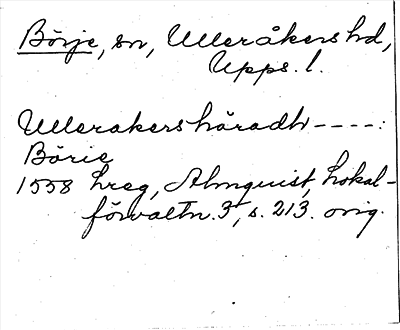 Börje, sn, Ulleråkers hd,
Upps. l.
Ullerakers häradh ----:
Börie
1558 hreg, Almquist, Lokal-
förvaltn. 3, s. 213. orig.